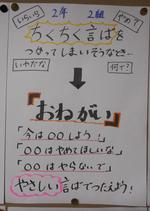 いらいら
2年 2組
やめて
ちくちく言ばを
つかってしまいそうなとき…
いやだな
何で?
『おねがい』
「今は〇〇しよう!」
「〇〇はやめてほしいな」
「〇〇はやらないで」
やさしい言ばでつたえよう!